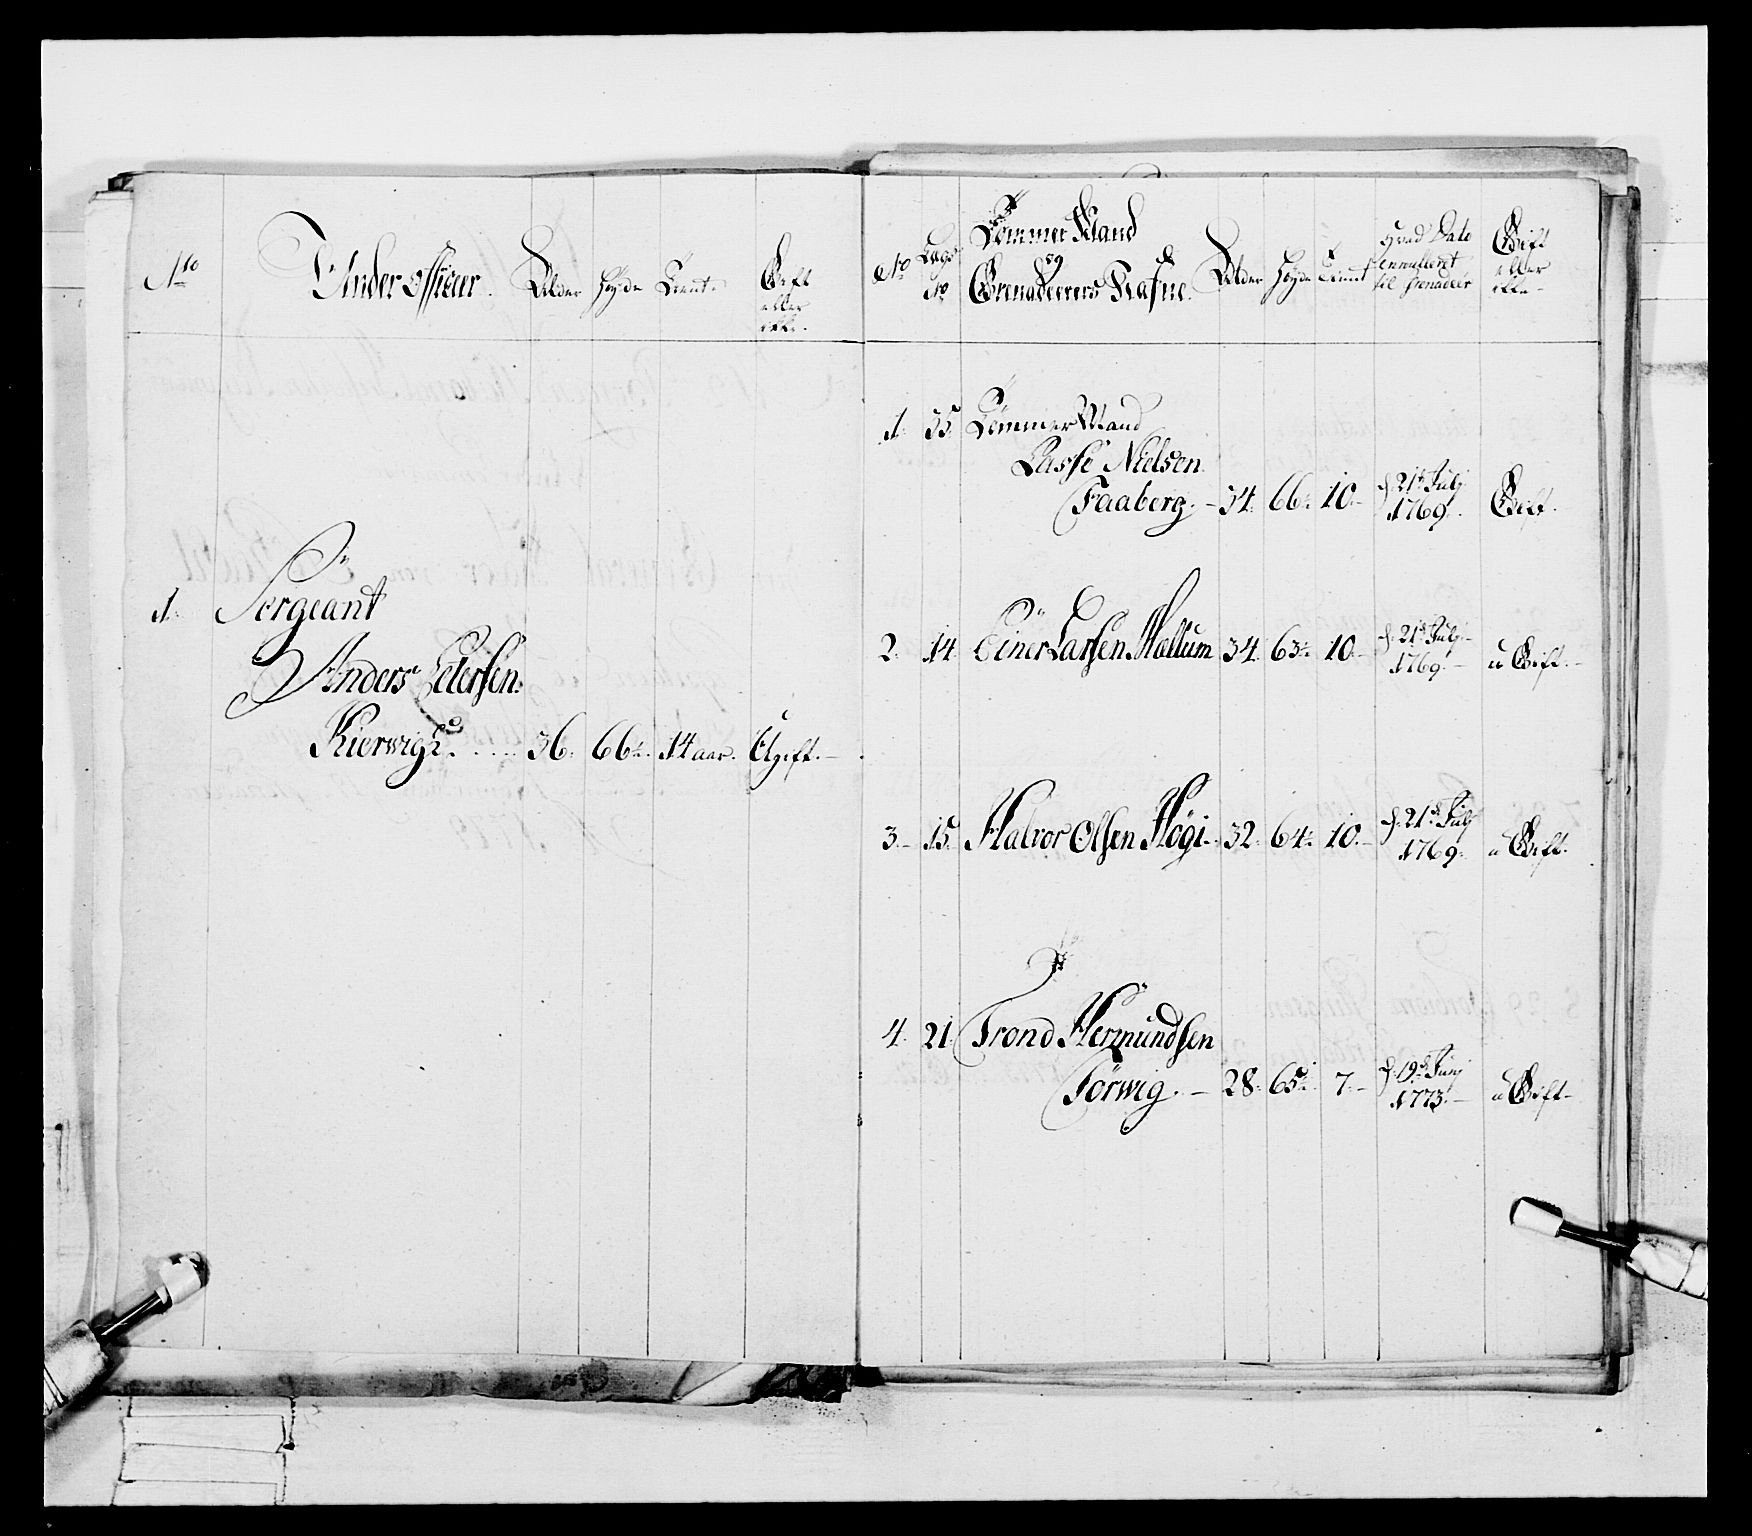 No
Under Officeer.
Alder
Høyde
Tient.
Gift
eller
ikke.
1. Sergeant
Anders Petersen
Kierwig. 36. 66. 14 aar. Ugift.
No
Lægs
No
Tömmer Mand
og
Grenadeerers Nafne.
Alder
Høyde
Tient
hvad Dato
enrulleret
til Grenadeer
Gift
eller
ikke.
1. 35. Tömmer Mand
Lasse Nielsen
Faaberg. 34. 66. 10. d. 21de Julj
1769. Gift.
2. 14. Einer Larsen Hallum 34. 63. 10. d. 21de Julj
1769. u Gift.
3. 15. Halvor Olsen Högi. 32. 64. 10. d. 21de Julj
1769. u Gift.
4. 21. Trond Hermundsen
Törwig. 28. 65. 7. d. 19de Junj
1773. u Gift.